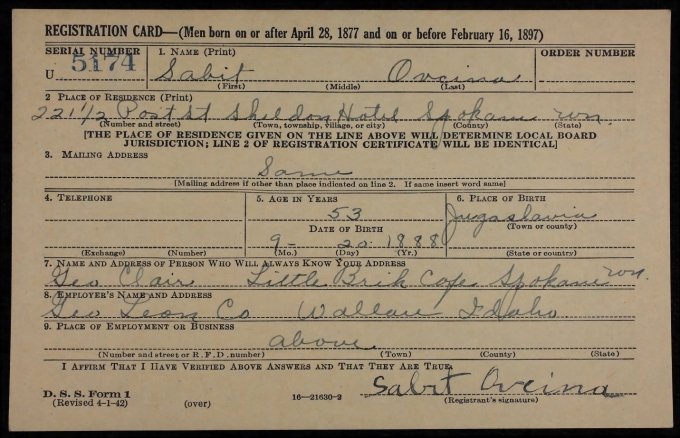 REGISTRATION CARD—(Men born on or after April 28, 1877 and on or before February 16, 1897)
SERIAL NUMBER 1. NAME (Print) ORDER NUMBER
U 5174 Sabit Ovcina
(First) (Middle) (Last)
2 PLACE OF RESIDENCE (Print)
221 1/2 Post St Sheldon Hotel Spokane Wn.
(Number and street) (Town, township, village, or city) (County) (State)
[THE PLACE OF RESIDENCE GIVEN ON THE LINE ABOVE WILL DETERMINE LOCAL BOARD
JURISDICTION; LINE 2 OF REGISTRATION CERTIFICATE WILL BE IDENTICAL]
3. MAILING ADDRESS
Same
[Mailing address if other than place indicated on line 2. If same insert word same]
4. TELEPHONE 5. AGE IN YEARS 6. PLACE OF BIRTH
53 Jugaslavia
DATE OF BIRTH (Town or county)
9- 20 1888
(Exchange) (Number) (Mo.) (Day) (Yr.) (State or country)
7. NAME AND ADDRESS OF PERSON WHO WILL ALWAYS KNOW YOUR ADDRESS
Geo Clair Little Brik Cafe Spokane Wn.
8. EMPLOYER'S NAME AND ADDRESS
Geo Leon Co Wallace Idaho
9. PLACE OF EMPLOYMENT OR BUSINESS
above
(Number and street or R. F. D. number) (Town) (County) (State)
I AFFIRM THAT I HAVE VERIFIED ABOVE ANSWERS AND THAT THEY ARE TRUE.
D. S. S. Form 1 Sabit Ovcina
(Revised 4-1-42) (over) 16—21630-2 (Registrant's signature)